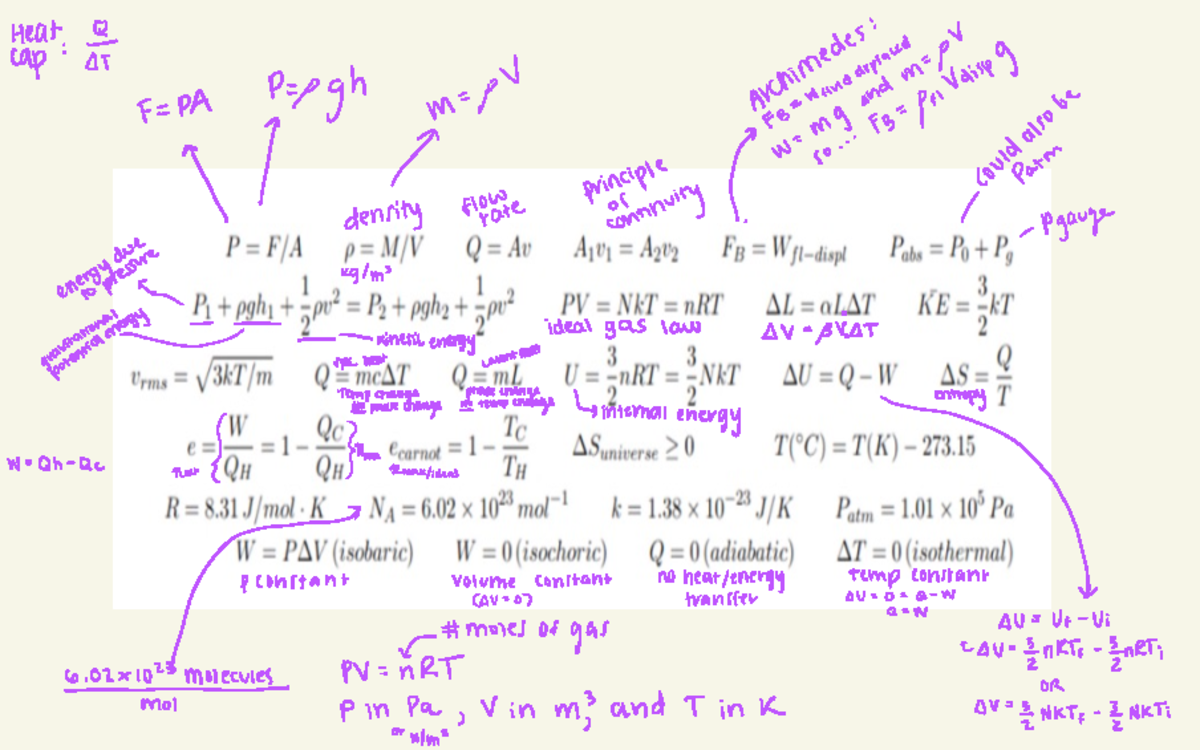 Heat cap: Q/ΔT
F = PA
P = ρgh
m = ρV
Archimedes:
F_B = W fluid displaced
W = mg and m = ρV
so... F_B = ρ_fl V_disp g
could also be Patm
density
flow rate
principle of continuity
P = F/A ρ = M/V Q = Av A₁v₁ = A₂v₂ F_B = W_fl-displ P_abs = P₀ + P_g
pgauge
kg/m³
energy due to pressure
P₁ + ρgh₁ + 1/2 ρv² = P₂ + ρgh₂ + 1/2 ρv² PV = NkT = nRT ΔL = αLΔT K̄E = 3/2 kT
gravitational potential energy
kinetic energy
ideal gas law
ΔV = βVΔT
spec heat
Latent heat
v_rms = √3kT/m Q = mcΔT Q = mL U = 3/2 nRT = 3/2 NkT ΔU = Q − W ΔS = Q/T
Temp change
phase change
phase change
temp change
internal energy
entropy
W = Qh - Qc
e = W/Q_H = 1 − Q_C/Q_H e_carnot = 1 − T_C/T_H ΔS_universe ≥ 0 T(°C) = T(K) − 273.15
R = 8.31 J/mol · K N_A = 6.02 × 10²³ mol⁻¹ k = 1.38 × 10⁻²³ J/K P_atm = 1.01 × 10⁵ Pa
W = PΔV (isobaric) W = 0 (isochoric) Q = 0 (adiabatic) ΔT = 0 (isothermal)
P constant
volume constant
(ΔV = 0)
no heat/energy transfer
temp constant
ΔU = 0 = Q - W
Q = W
# moles of gas
6.02 x 10²³ molecules
mol
PV = nRT
P in Pa, V in m³, and T in K
or N/m²
ΔU = Uf - Ui
ΔU = 3/2 nRTf - 3/2 nRTi
OR
ΔU = 3/2 NKTf - 3/2 NKTi